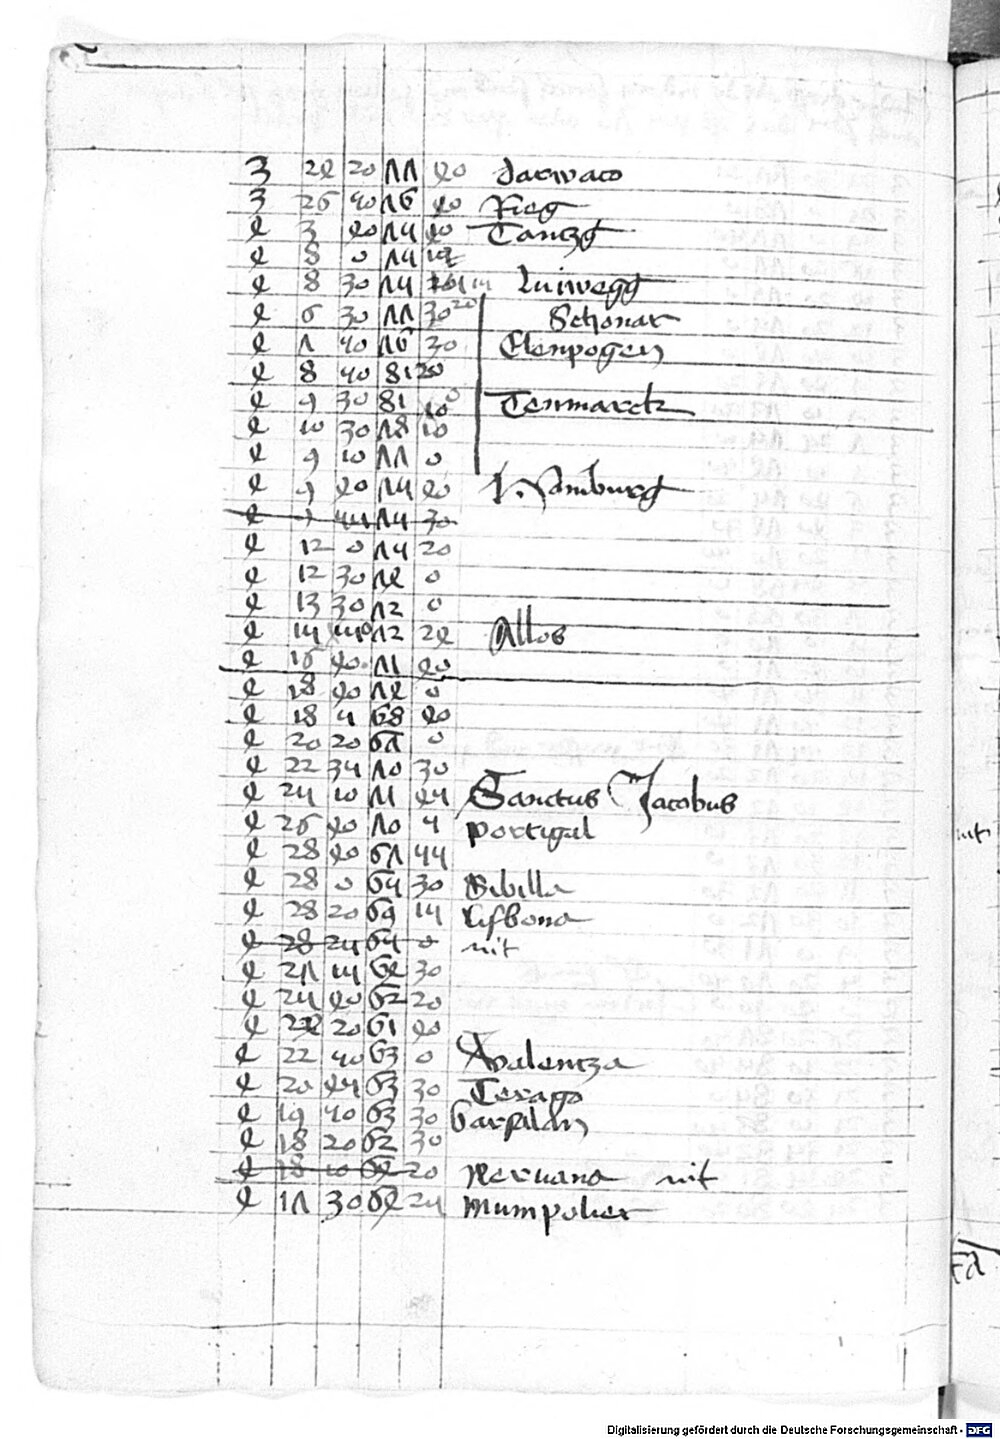 3 28 20 11 20 Darwaco
3 26 40 16 20 Rieg
2 3 20 14 20 Tantzg
2 8 0 14 12
2 8 30 14 Luiwegg
2 6 30 11 30 20 Schonar
2 1 40 16 30 Elenpogen
2 8 40 81 20
2 9 30 81 10 Tenmarck
2 10 30 18 10
2 9 10 11 0
2 9 20 14 20 Hamburg
2 9 44 14 30
2 12 0 14 20
2 12 30 12 0
2 13 30 12 0
2 14 12 22 Allos
2 16 20 11 20
2 18 20 12 0
2 18 4 68 20
2 20 20 61 0
2 22 34 10 30
2 24 10 11 24 Sanctus Jacobus
2 26 20 10 4 portugal
2 28 20 61 44
2 28 0 64 30 Sibilla
2 28 20 69 14 lisbona
2 28 24 64 0 nit
2 21 14 62 30
2 24 20 62 20
2 22 20 61 20
2 22 40 63 0 Avalentza
2 20 24 63 30 Terago
2 19 40 63 30 Parsilon
2 18 20 62 30
2 18 10 62 20 Neruana nit
2 11 30 62 24 Mumpolier
Digitalisierung gefördert durch die Deutsche Forschungsgemeinschaft - DFG